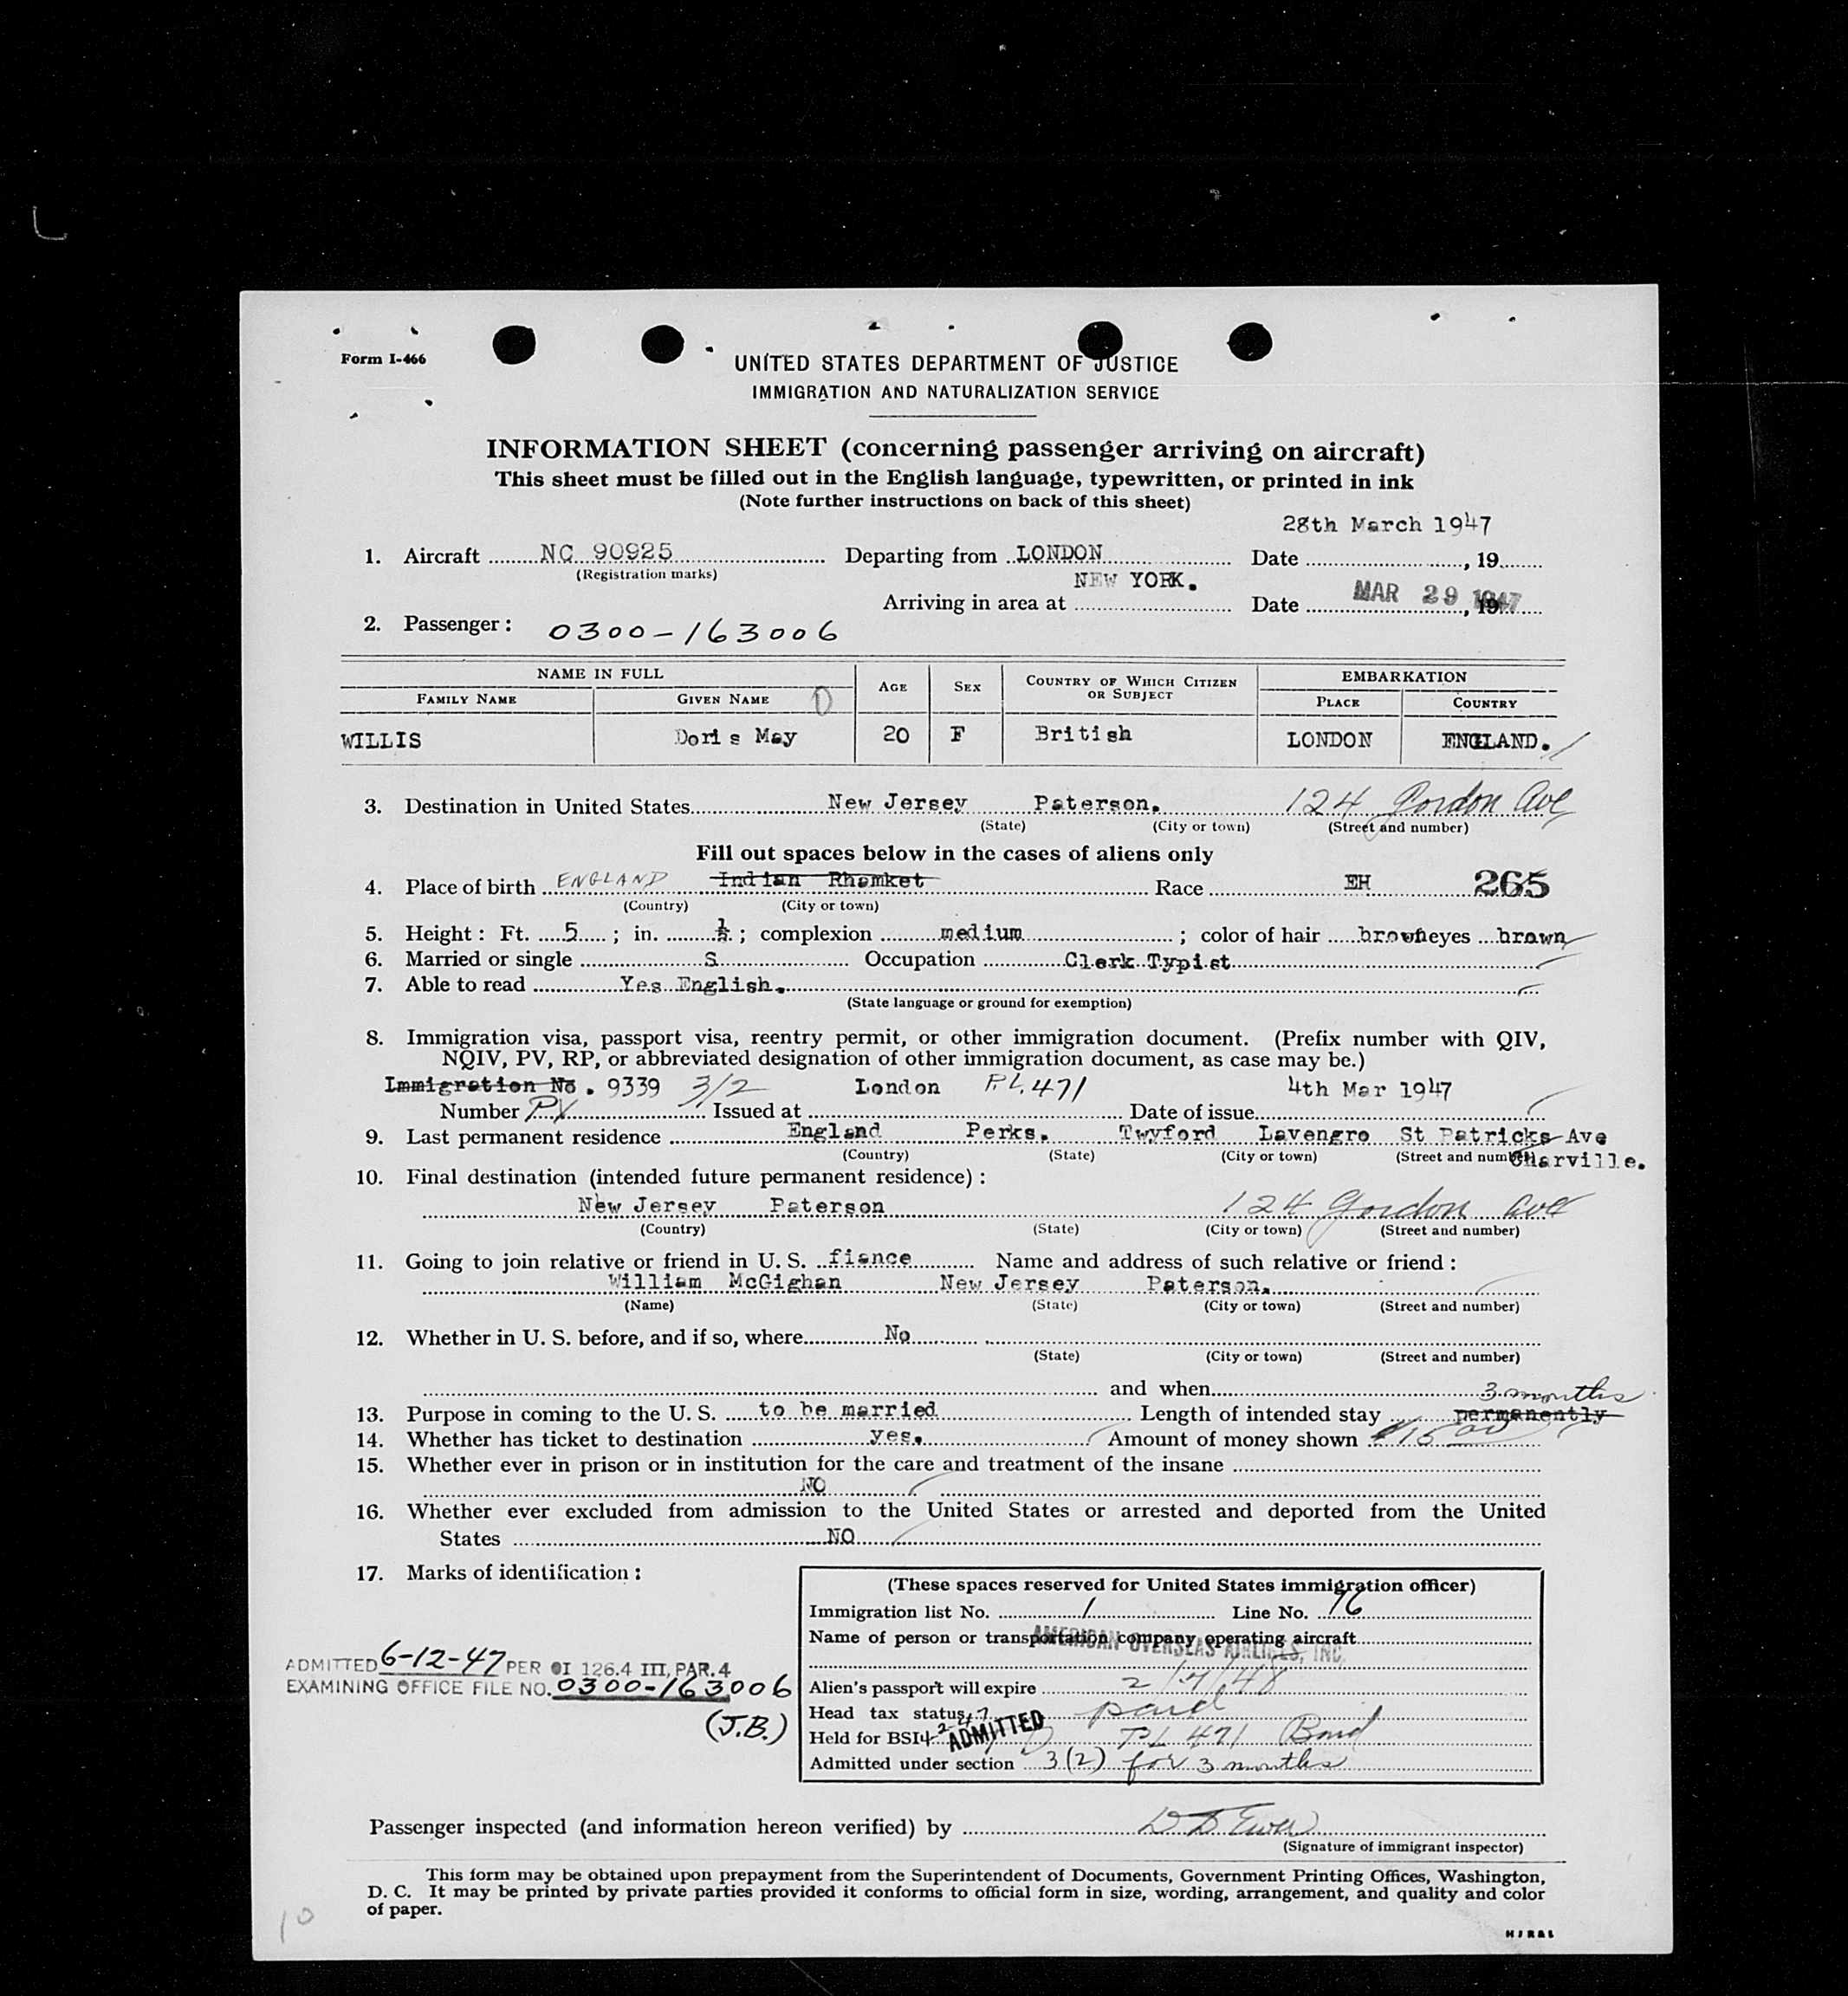 Form I-466
UNITED STATES DEPARTMENT OF JUSTICE
IMMIGRATION AND NATURALIZATION SERVICE
INFORMATION SHEET (concerning passenger arriving on aircraft)
This sheet must be filled out in the English language, typewritten, or printed in ink
(Note further instructions on back of this sheet)
28th March 1947
1. Aircraft NC 90925 Departing from LONDON Date , 19
(Registration marks)
NEW YORK.
Arriving in area at Date MAR 29 1947, 19
2. Passenger: 0300-163006
NAME IN FULL AGE SEX COUNTRY OF WHICH CITIZEN OR SUBJECT EMBARKATION
FAMILY NAME GIVEN NAME PLACE COUNTRY
WILLIS Doris May 20 F British LONDON ENGLAND.
3. Destination in United States New Jersey Paterson. 124 Gordon Ave
(State) (City or town) (Street and number)
Fill out spaces below in the cases of aliens only
4. Place of birth ENGLAND Indian Rhamket Race EH 265
(Country) (City or town)
5. Height: Ft. 5; in. ½; complexion medium; color of hair brown eyes brown
6. Married or single S Occupation Clerk Typist
7. Able to read Yes English.
(State language or ground for exemption)
8. Immigration visa, passport visa, reentry permit, or other immigration document. (Prefix number with QIV,
NQIV, PV, RP, or abbreviated designation of other immigration document, as case may be.)
Immigration No. 9339 3/2 London P.L. 471 4th Mar 1947
Number PV Issued at Date of issue
9. Last permanent residence England Perks. Twyford Lavengro St Patricks Ave
(Country) (State) (City or town) (Street and number) Charville.
10. Final destination (intended future permanent residence):
New Jersey Paterson 124 Gordon Ave
(Country) (State) (City or town) (Street and number)
11. Going to join relative or friend in U. S. fiance Name and address of such relative or friend:
William McGighan New Jersey Paterson.
(Name) (State) (City or town) (Street and number)
12. Whether in U. S. before, and if so, where No
(State) (City or town) (Street and number)
and when
3 months
13. Purpose in coming to the U. S. to be married Length of intended stay permanently
14. Whether has ticket to destination yes. Amount of money shown $15 00
15. Whether ever in prison or in institution for the care and treatment of the insane
NO
16. Whether ever excluded from admission to the United States or arrested and deported from the United
States NO
17. Marks of identification:
(These spaces reserved for United States immigration officer)
Immigration list No. 1 Line No. 76
Name of person or transportation company operating aircraft
AMERICAN OVERSEAS AIRLINES, INC.
ADMITTED 6-12-47 PER OI 126.4 III, PAR. 4
EXAMINING OFFICE FILE NO. 0300-163006
(J.B.)
Alien's passport will expire 2/7/48
Head tax status paid
Held for BSI ADMITTED PL 471 Bond
Admitted under section 3(2) for 3 months
Passenger inspected (and information hereon verified) by
(Signature of immigrant inspector)
This form may be obtained upon prepayment from the Superintendent of Documents, Government Printing Offices, Washington,
D. C. It may be printed by private parties provided it conforms to official form in size, wording, arrangement, and quality and color
of paper.
10